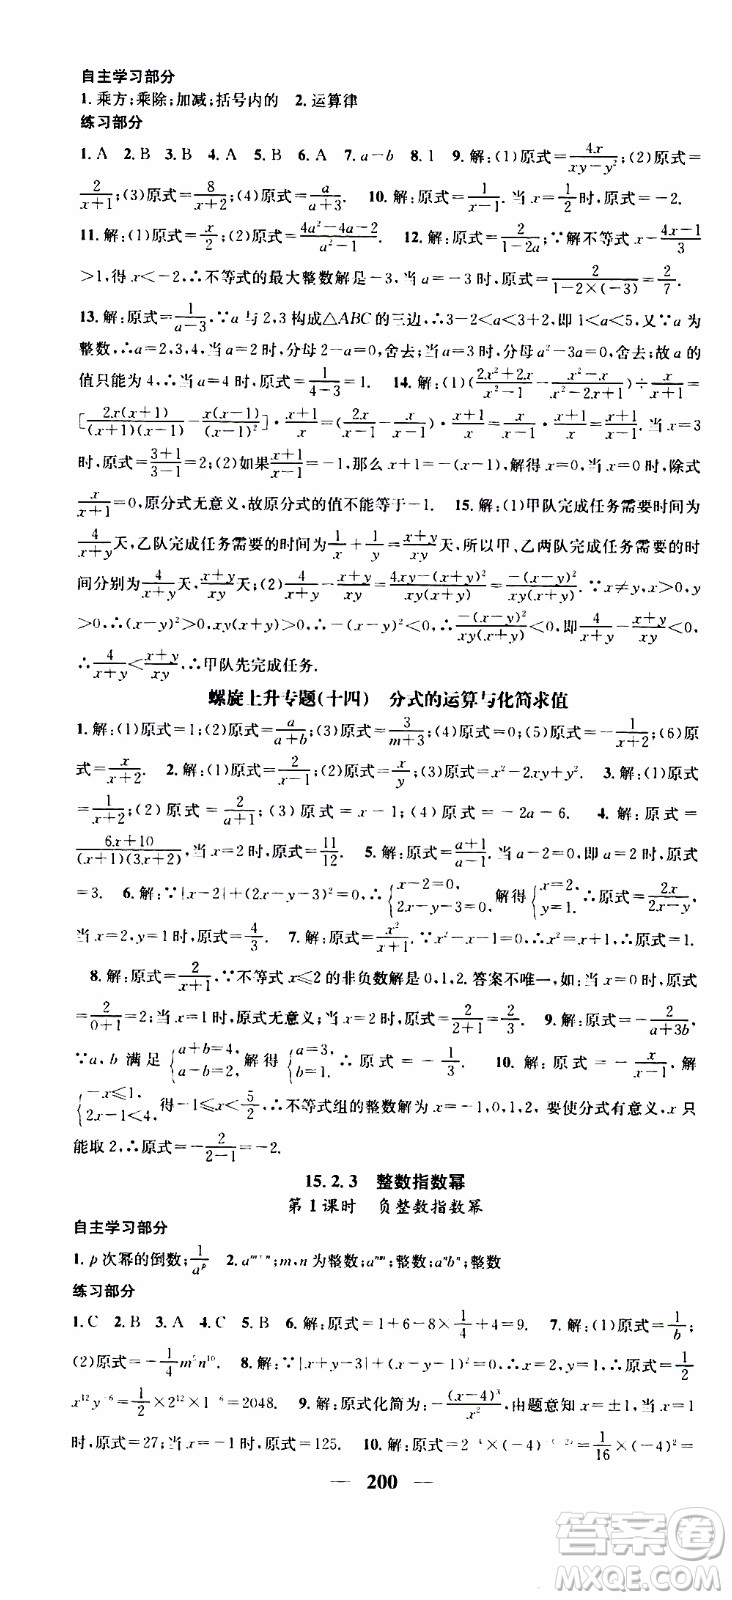 自主学习部分
1. 乘方;乘除;加减;括号内的 2. 运算律
练习部分
1. A 2. B 3. C 4. A 5. B 6. A 7. a-b 8. 1 9. 解:(1)原式=4x/(xy-y²);(2)原式=
2/(x+1);(3)原式=8/(x+2);(4)原式=a/(a+3). 10. 解:原式=1/(x-1). 当 x=1/2时,原式=-2.
11. 解:(1)原式=x/2;(2)原式=(4a²-4a-2)/(a²-1). 12. 解:原式=2/(1-2a);∵解不等式 x-(4x-1)/3
>1,得 x<-2,∴不等式的最大整数解是-3,当 a=-3时,原式=2/(1-2×(-3))=2/7.
13. 解:原式=1/(a-3),∵a 与 2,3 构成△ABC 的三边,∴3-2<a<3+2,即 1<a<5,又∵a 为
整数,∴a=2,3,4,当 a=2 时,分母 2-a=0,舍去;当 a=3 时,分母 a²-3a=0,舍去;故 a 的
值只能为 4,∴当 a=4 时,原式=1/(4-3)=1. 14. 解:(1)((2x²+2x)/(x²-1)-(x²-x)/(x²-2x+1))÷x/(x+1)=
[2x(x+1)/((x+1)(x-1))-x(x-1)/(x-1)²]·(x+1)/x=(2x/(x-1)-x/(x-1))·(x+1)/x=(x+1)/(x-1). 当 x=3 时,
原式=(3+1)/(3-1)=2;(2)如果(x+1)/(x-1)=-1,那么 x+1=-x+1,解得 x=0,当 x=0 时,除式
x/(x+1)=0,原分式无意义,故原分式的值不能等于-1. 15. 解:(1)甲队完成任务需要时间为
4/(x+y)天,乙队完成任务需要的时间为1/x+1/y=(x+y)/xy天,所以甲、乙两队完成任务需要的时
间分别为4/(x+y)天,(x+y)/xy天;(2)4/(x+y)-(x+y)/xy=(4xy-(x+y)²)/(xy(x+y))=-(x-y)²/(xy(x+y)). ∵x≠y,x>0,y
>0,∴(x-y)²>0,xy(x+y)>0,∴-(x-y)²<0,∴-(x-y)²/(xy(x+y))<0,即4/(x+y)-(x+y)/xy<0,
∴4/(x+y)<(x+y)/xy,∴甲队先完成任务.
螺旋上升专题(十四) 分式的运算与化简求值
1. 解:(1)原式=1;(2)原式=a/(a+b);(3)原式=3/(m+3);(4)原式=0;(5)原式=-1/(x+2);(6)原
式=x/(x+2). 2. 解:(1)原式=2/(x-1);(2)原式=x/(x+y);(3)原式=x²-2xy+y². 3. 解:(1)原式
=1/(x+2);(2)原式=2/(a+1);(3)原式=x-1;(4)原式=-2a-6. 4. 解:(1)原式=
(6x+10)/((x+1)(3x+2)),当 x=2 时,原式=11/12. 5. 解:原式=(a+1)/(a-1). 当 a-2=0,即 a=2 时,原式
=3. 6. 解:∵|x-2|+(2x-y-3)²=0,∴{x-2=0, 2x-y-3=0, 解得{x=2, y=1. ∵原式=2x/(x+y),
当 x=2,y=1 时,原式=4/3. 7. 解:原式=x²/(x+1). ∵x²-x-1=0,∴x²=x+1,∴原式=1.
8. 解:原式=2/(x+1),∵不等式 x≤2 的非负数解是 0,1,2. 答案不唯一,如:当 x=0 时,原式
=2/(0+1)=2;当 x=1 时,原式无意义;当 x=2 时,原式=2/(2+1)=2/3. 9. 解:原式=-2/(a+3b),
∵a,b 满足{a+b=4, a-b=2, 解得{a=3, b=1, ∴原式=-1/3. 10. 解:原式=-x/(x-1). 解
{-x≤1, 2x-1<4, 得-1≤x<5/2,∴不等式组的整数解为-1,0,1,2,要使分式有意义,x 只
能取 2,∴原式=-2/(2-1)=-2.
15.2.3 整数指数幂
第1课时 负整数指数幂
自主学习部分
1. p 次幂的倒数;1/aᵖ 2. aᵐ⁺ⁿ;m,n 为整数;aᵐⁿ;整数;aⁿbⁿ;整数
练习部分
1. C 2. B 3. A 4. C 5. B 6. 解:原式=1+6-8×1/4+4=9. 7. 解:(1)原式=1/b;
(2)原式=-1/4m⁵n¹⁰. 8. 解:∵|x+y-3|+(x-y-1)²=0,∴x=2,y=1,∴原式=1/2
x¹²y⁻⁶=1/2×2¹²×1⁻⁶=2048. 9. 解:原式化简为:-(x-4)³/x²,由题意知 x=±1,当 x=1 时,
原式=27;当 x=-1 时,原式=125. 10. 解:原式=2⁻⁴×(-4)=1/16×(-4)=
200
答案圈